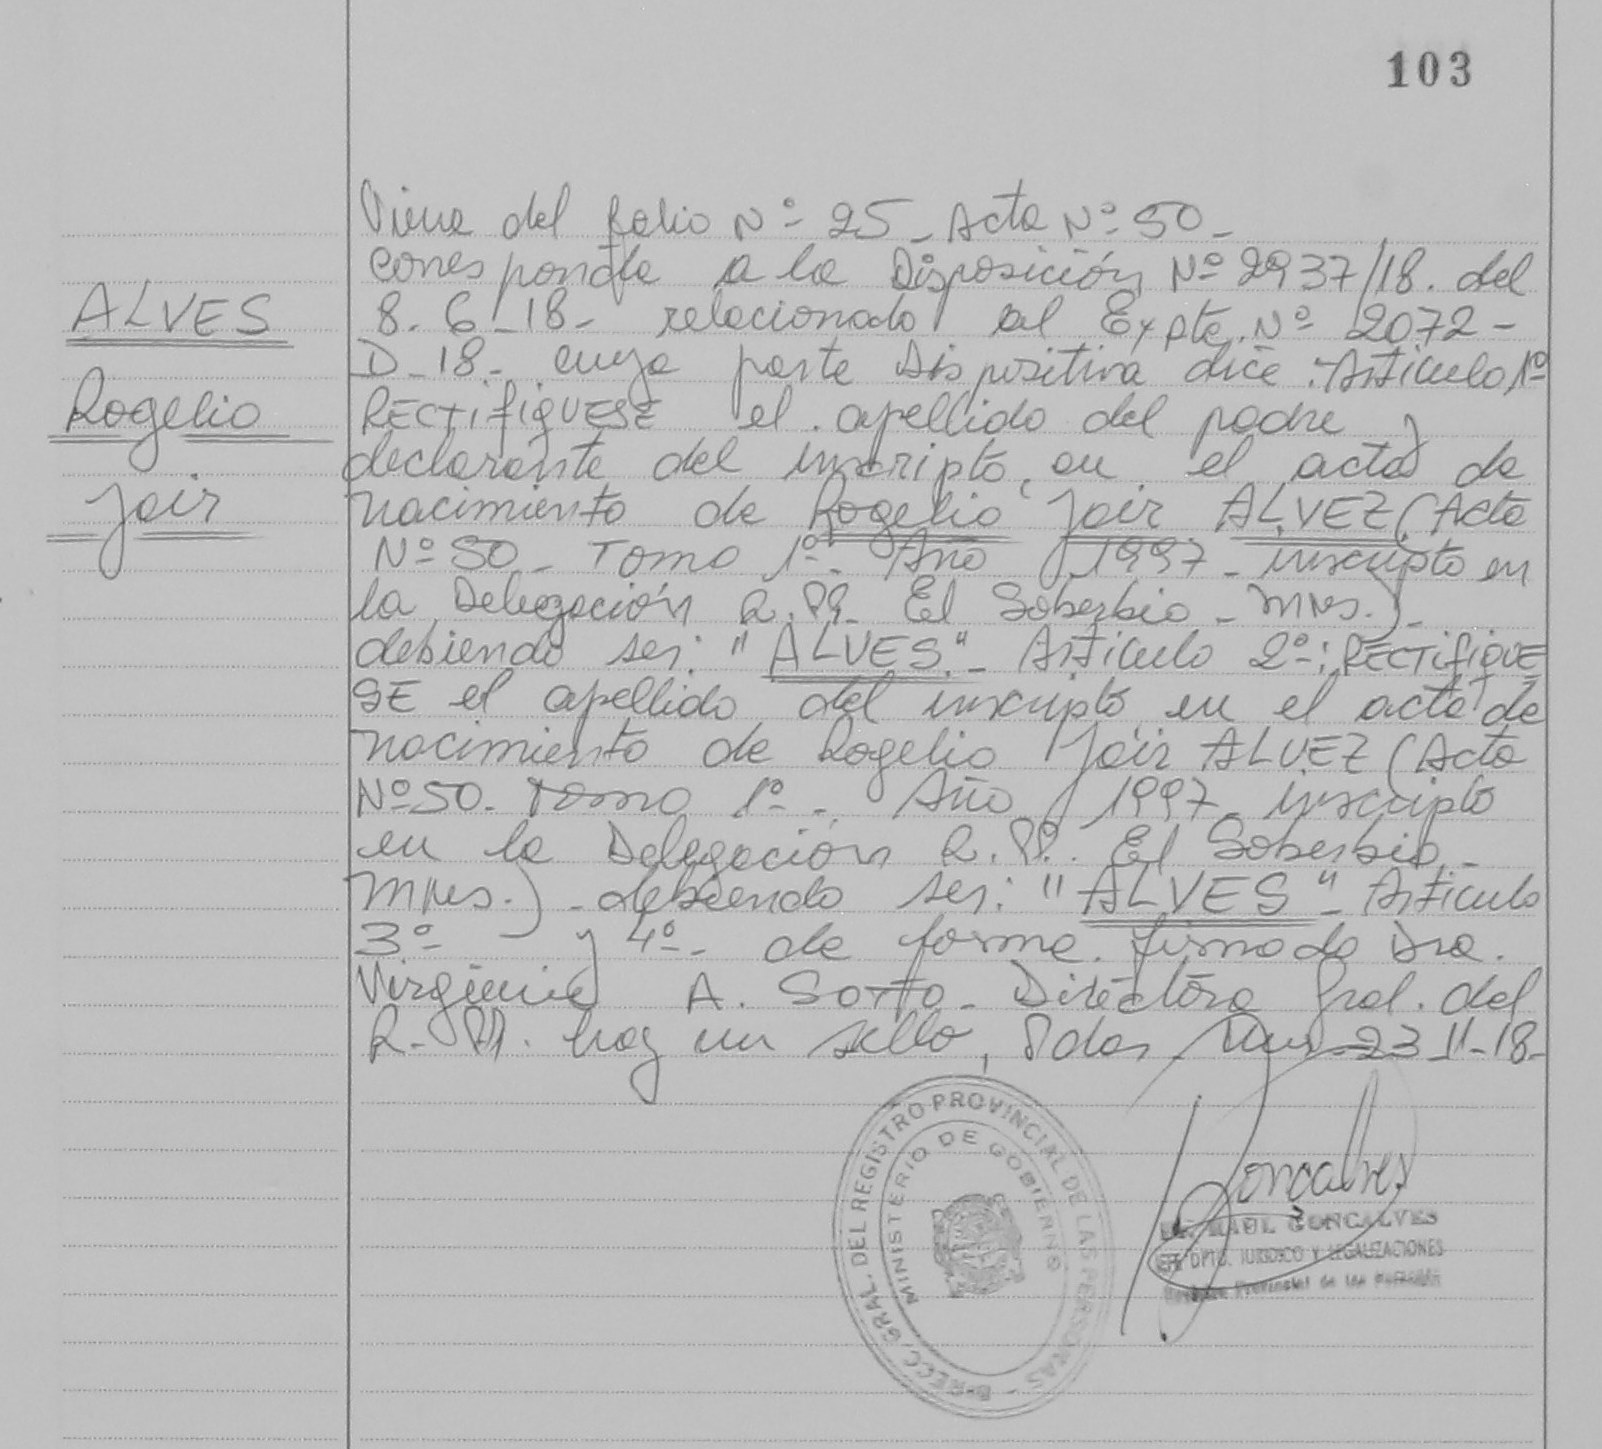 103
Viene del folio Nº 25 - Acta Nº 50 -
corresponde a la Disposición Nº 2937/18. del
ALVES
8. 6 - 18 - relacionado al Expte. Nº 2072 -
D - 18 - cuya parte dispositiva dice: Artículo 1º
Rogelio
RECTIFIQUESE el apellido del padre y
declarante del inscripto, en el acta de
Jair
nacimiento de Rogelio Jair ALVEZ (Acta
Nº 50 - Tomo 1º - Año 1997 - inscripto en
la Delegación R. PP. El Soberbio - Mnes.) -
debiendo ser: "ALVES" - Artículo 2º: RECTIFIQUE
SE el apellido del inscripto en el acta de
nacimiento de Rogelio Jair ALVEZ (Acta
Nº 50 - Tomo 1º - Año 1997 inscripto
en la Delegación R. PP. El Soberbio -
Mnes.) - debiendo ser: "ALVES" - Artículo
3º y 4º - de forma. firmado Dra.
Virginia A. Sotto - Directora Gral. del
R. PP. hay un sello, Pdas. Mnes. 23 - 11 - 18 -
DIRECC. GRAL. DEL REGISTRO PROVINCIAL DE LAS PERSONAS -
MINISTERIO DE GOBIERNO
Goncalves
RAUL GONCALVES
DPTO. JURIDICO Y LEGALIZACIONES
Provincial de las Personas